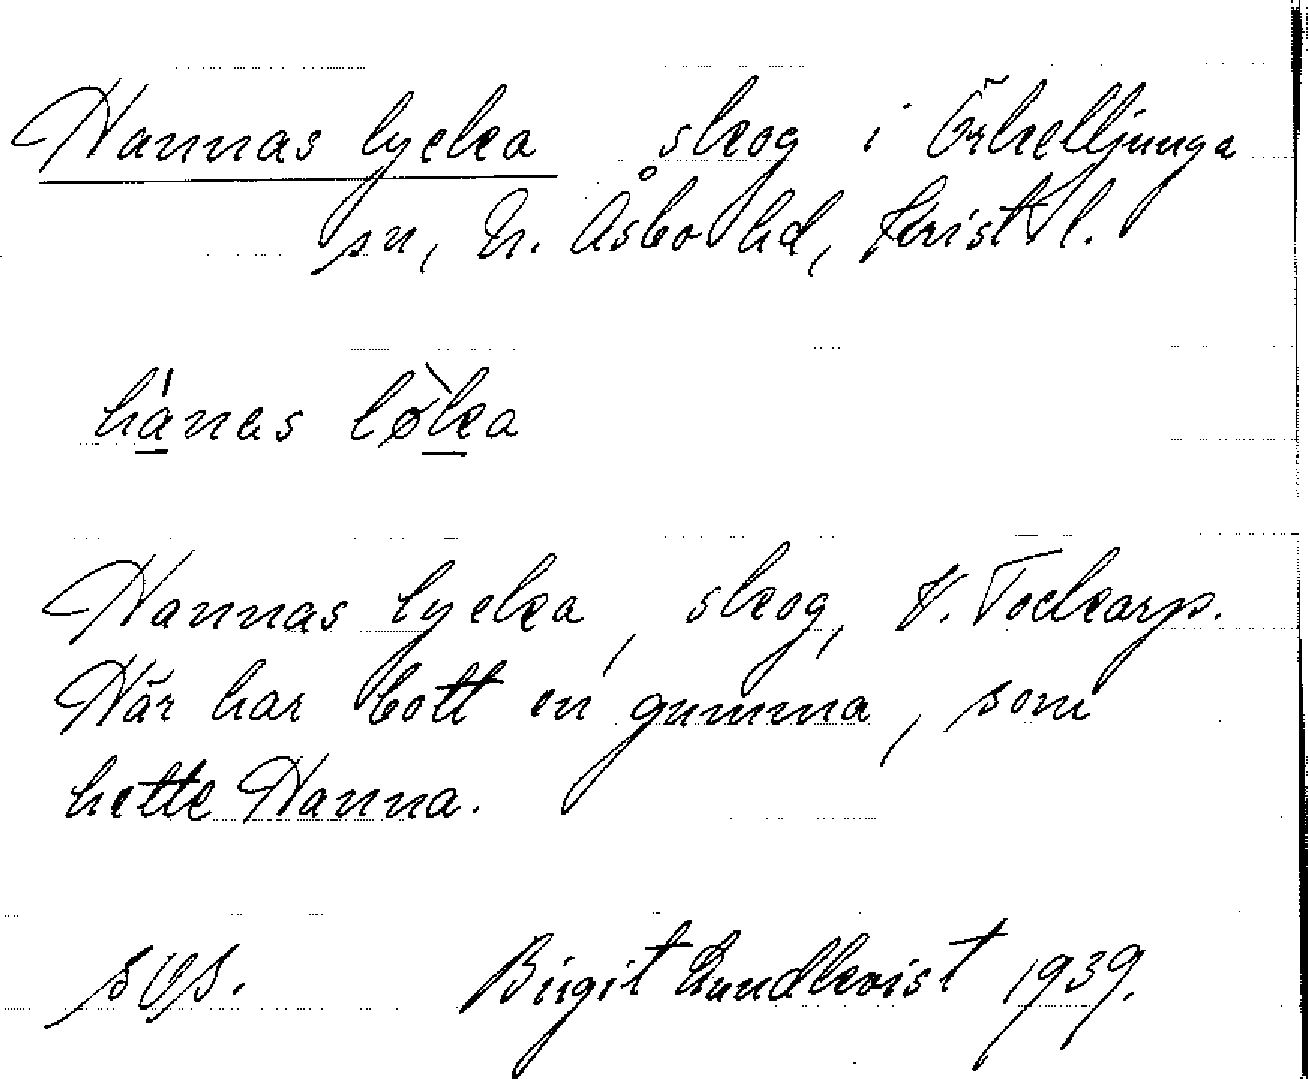 Hannas lycka skog i Örkelljunga
sn, N. Åsbo hd, Krist. l.
hánas lø̀ka
Hannas lycka, skog, V. Tockarp.
Här har bott en gumma, som
hette Hanna.
Birgit Lundkvist 1939.